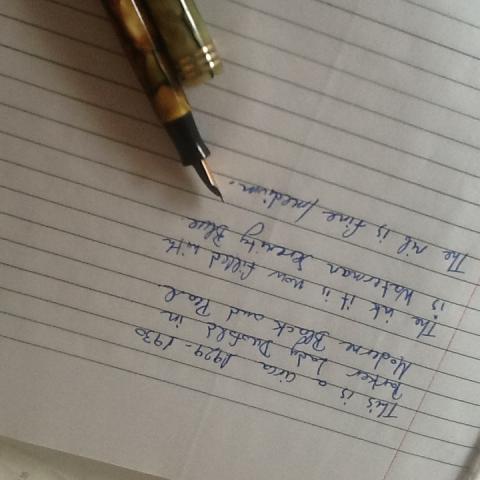 This is a circa 1929-1930
Parker Lady Duofold in
Moderne Black and Pearl.
The ink it is now filled with
is Waterman Serenity Blue
The nib is fine/medium.